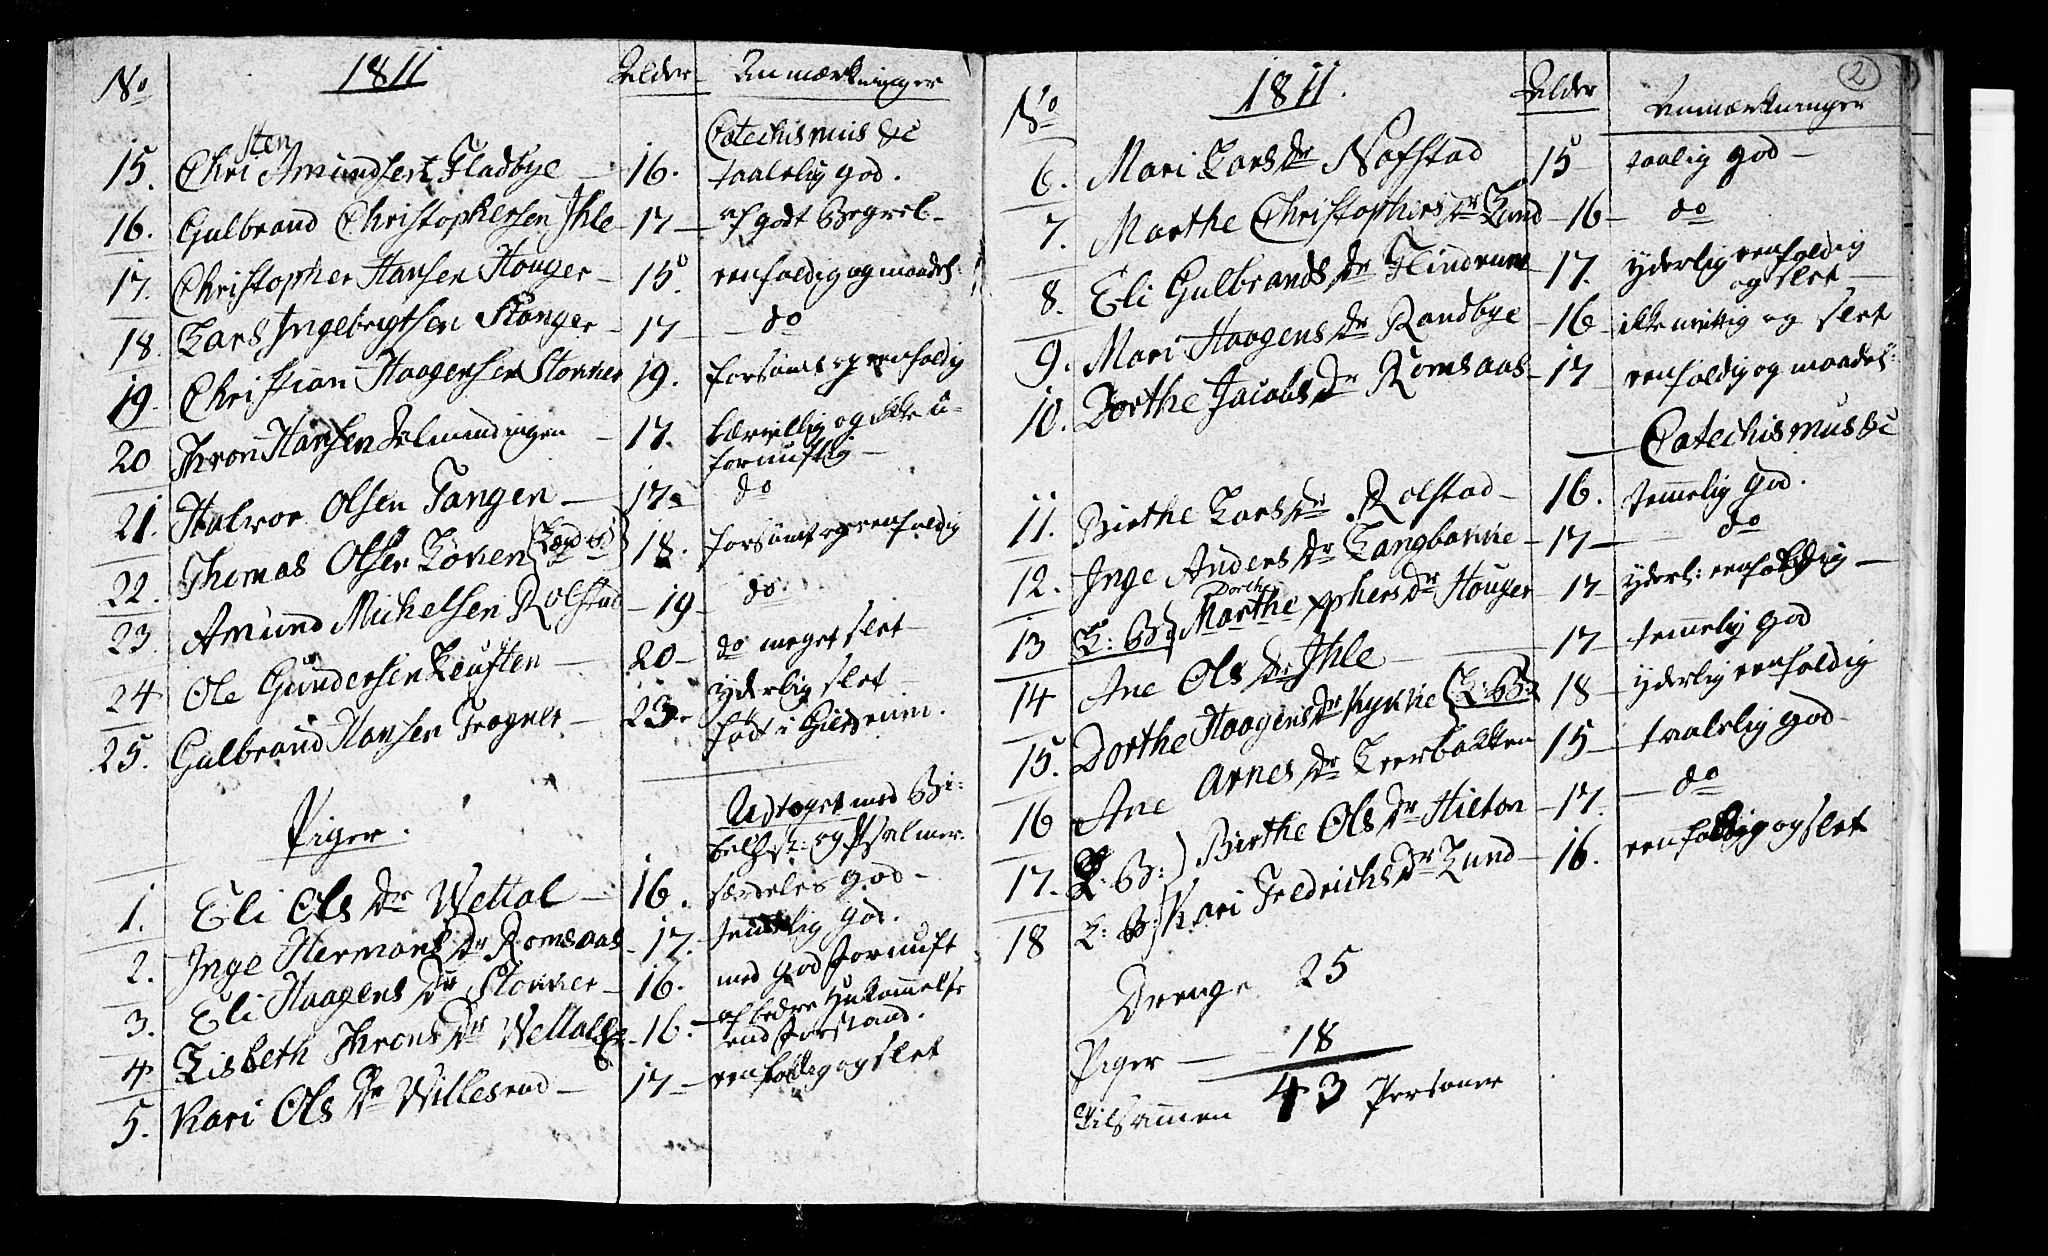 No 1811 Alder Anmærkninger
Catechismus &c
15. Christen Amundsen Fladbye 16. taalelig god.
16. Gulbrand Christophersen Ihle 17 af godt Begreb
17. Christopher Hansen Houger 15. eenfoldig og maadel:
18. Lars Ingebregtsen Stanger 17 do
19 Christian Haagensen Stovner 19. forsømt og eenfoldig
20 Thron Hansen Almindingen 17. lærvillig og ikke u-
fornuftig
21. Halvor Olsen Tangen 17 do
22. Thomas Olsen Loven 18. forsømt og eenfoldig
23. Amund Michelsen Rolstad 19 do
24 Ole Gundersen Leuften 20 do meget slet
25. Gulbrand Hansen Trogner 23 yderlig slet
født i
Piger.
Udtoget med Bi-
belhist: og Psalmer.
1. Eli Ols Dr Wettal 16. særdeles god
2. Inge Hermans Dr Romsaas 17. temelig god.
3. Eli Haagens Dr Stovner 16. med god Fornuft
4 Lisbeth Throns Dr Wettal 16. af bedre Hukommelse
end Forstand.
5. Kari Ols Dr Willesend 17 eenfoldig og slet
2
No 1811. Alder Anmærkninger
6. Mari Lars Dr Nafstad 15 taalig god
7. Marthe Christophers Dr Lund 16 do
8. Eli Gulbrands Dr Flindrum 17. yderlig eenfoldig
og slet
9. Mari Haagens Dr Randbye 16 ikke nittig og slet
10. Dorthe Jacobs Dr Romsaas 17 eenfoldig og maadel:
Catechismus &c
11. Birthe Lars Dr Rolstad 16. temmelig God.
12. Inge Anders Dr Langbakke 17 do
13 L: B: Marthe Dorthe xphers Dr Houger 17 yderl: eenfoldig
14 Ane Ols Dr Ihle 17 temmelig god
15. Dorthe Haagens Dr Kykkie L: B: 18 yderlig eenfoldig
16 Ane Arnes Dr Leerbakken 15 taalelig god
17. L: B:) Birthe Ols Dr Hilton 17. do
18 L: B:) Kari Fredrichs Dr Lund 16. eenfoldig og slet
Drenge 25
Piger 18
Tilsammen 43 Personer